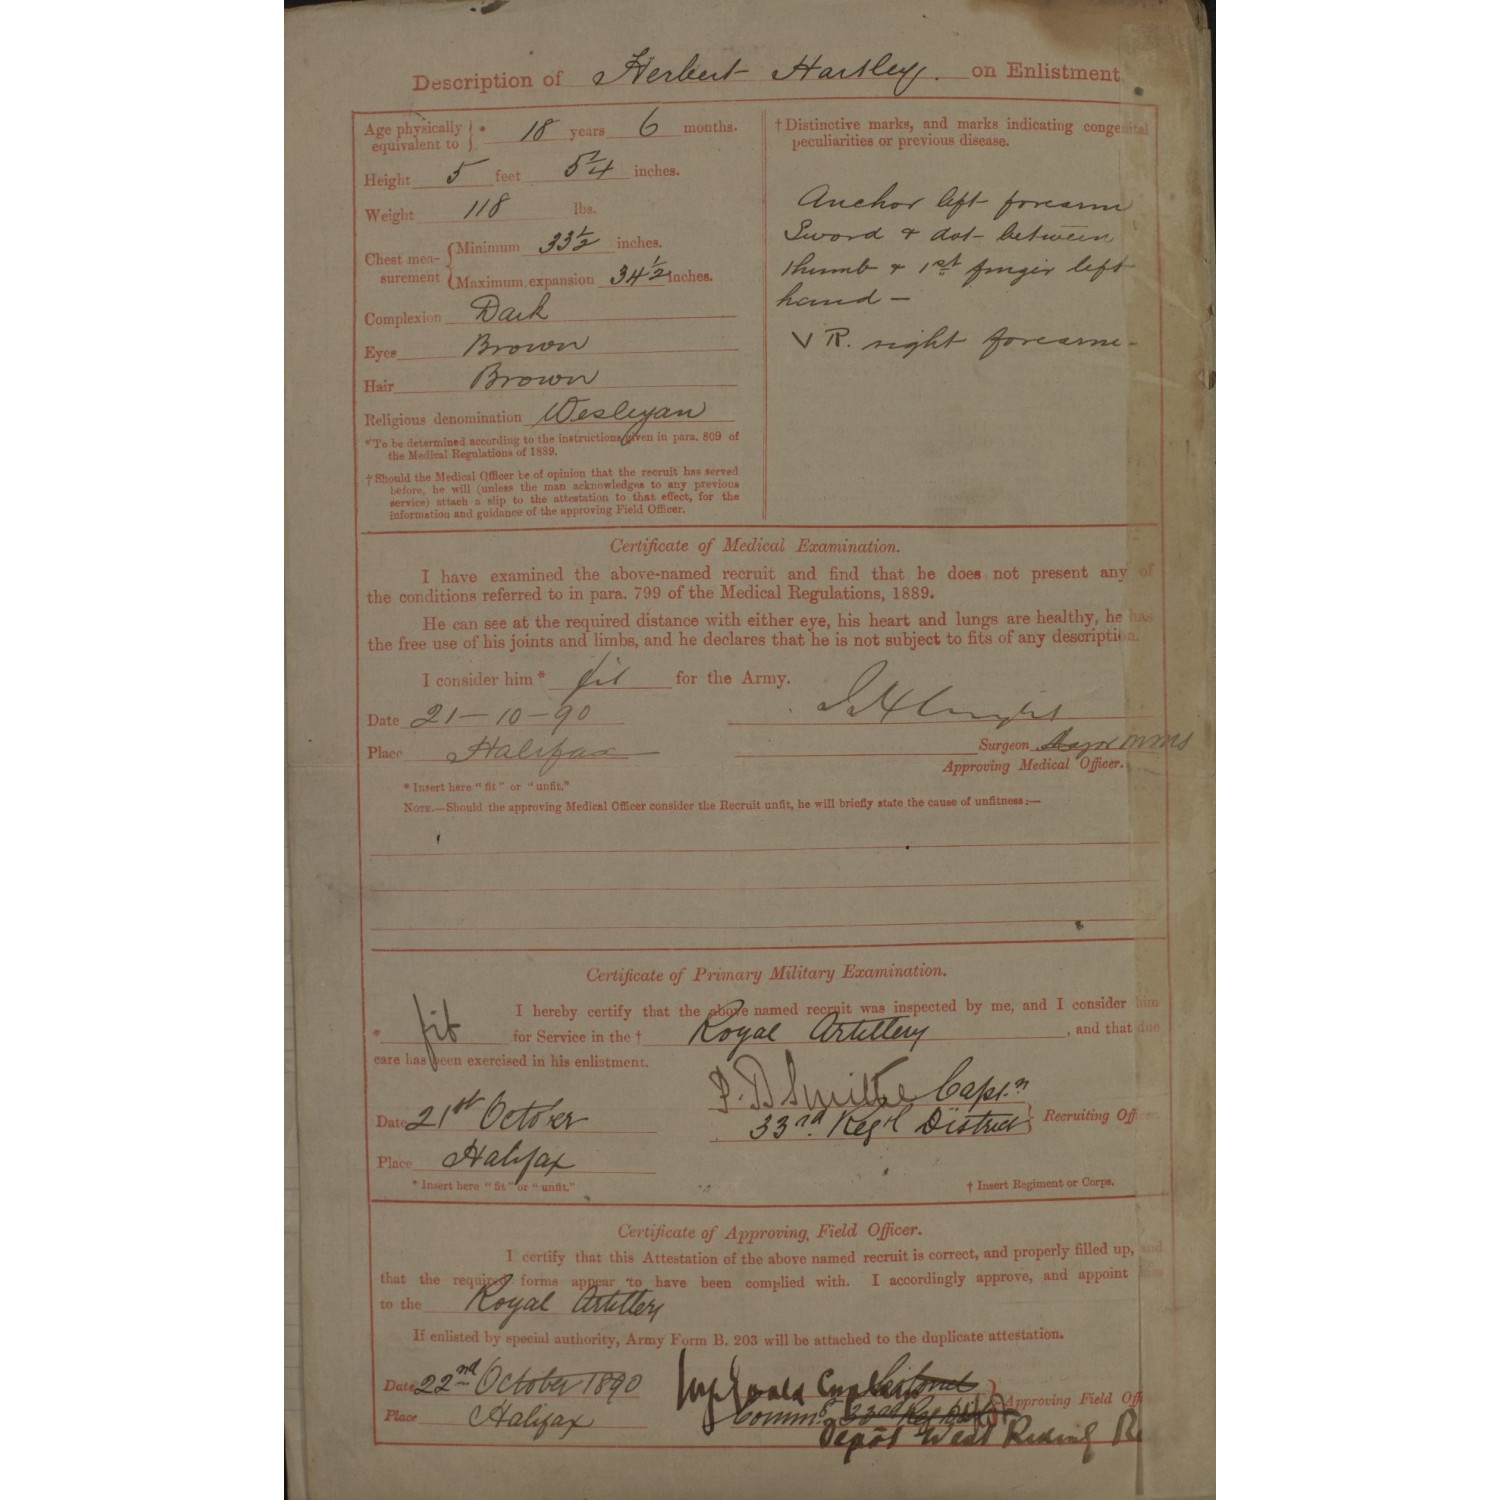 Description of Herbert Hartley. on Enlistment
Age physically equivalent to * 18 years 6 months.
Height 5 feet 5 1/4 inches.
Weight 118 lbs.
Chest mea-surement
Minimum 33 1/2 inches.
Maximum expansion 34 1/2 inches.
Complexion Dark
Eyes Brown
Hair Brown
Religious denomination Wesleyan
*To be determined according to the instructions given in para. 809 of
the Medical Regulations of 1889.
†Should the Medical Officer be of opinion that the recruit has served
before, he will (unless the man acknowledges to any previous
service) attach a slip to the attestation to that effect, for the
information and guidance of the approving Field Officer.
†Distinctive marks, and marks indicating congenital
peculiarities or previous disease.
Anchor left forearm
Sword & dot between
thumb & 1st finger left
hand —
V R. right forearm -
Certificate of Medical Examination.
I have examined the above-named recruit and find that he does not present any of
the conditions referred to in para. 799 of the Medical Regulations, 1889.
He can see at the required distance with either eye, his heart and lungs are healthy, he has
the free use of his joints and limbs, and he declares that he is not subject to fits of any description.
I consider him * fit for the Army.
Date 21-10-90
Place Halifax
Surgeon Major
Approving Medical Officer.
* Insert here "fit" or "unfit."
NOTE.—Should the approving Medical Officer consider the Recruit unfit, he will briefly state the cause of unfitness:—
Certificate of Primary Military Examination.
I hereby certify that the above named recruit was inspected by me, and I consider him
* fit for Service in the † Royal Artillery, and that due
care has been exercised in his enlistment.
Capt.n
Date 21st October
33rd Regl District } Recruiting Offi
Place Halifax
* Insert here "fit" or "unfit."
† Insert Regiment or Corps.
Certificate of Approving Field Officer.
I certify that this Attestation of the above named recruit is correct, and properly filled up, and
that the required forms appear to have been complied with. I accordingly approve, and appoint him
to the Royal Artillery
If enlisted by special authority, Army Form B. 203 will be attached to the duplicate attestation.
Date 22nd October 1890
Approving Field Off
Place Halifax
Comm.g 33rd
Depôt West Riding R